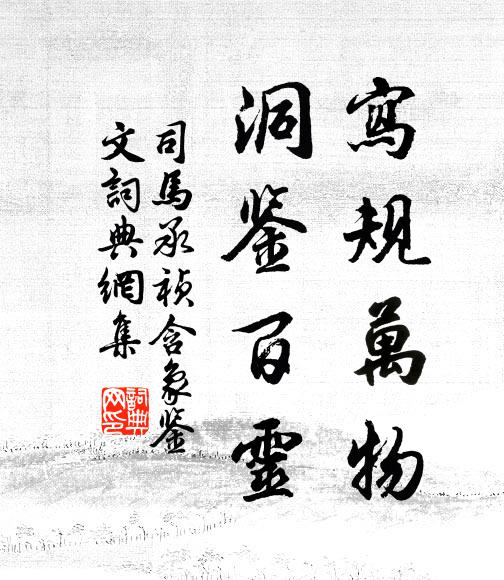 寫規萬物
洞鉴百靈
司馬承祯含象鉴
文詞典網集
詞典
网印